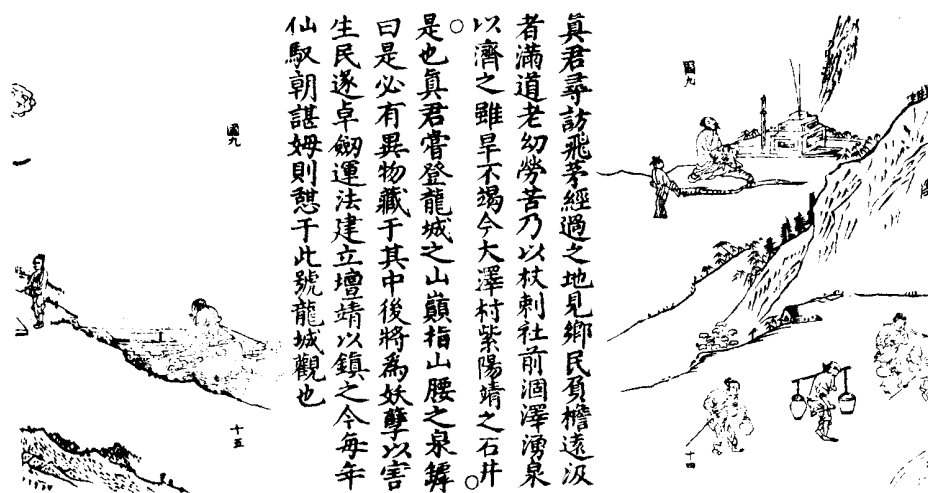 圖九
真君尋訪飛茅經過之地見鄉民負檐遠汲
者滿道老幼勞苦乃以杖刺社前涸澤湧泉
以濟之雖旱不竭今大澤村紫陽靖之石井
是也真君嘗登龍城之山巔指山腰之泉罅
曰是必有異物藏于其中後將為妖孽以害
生民遂卓劒運法建立壇靖以鎮之今每年
仙馭朝諶姆則憇于此號龍城觀也
十四
圖九
十五